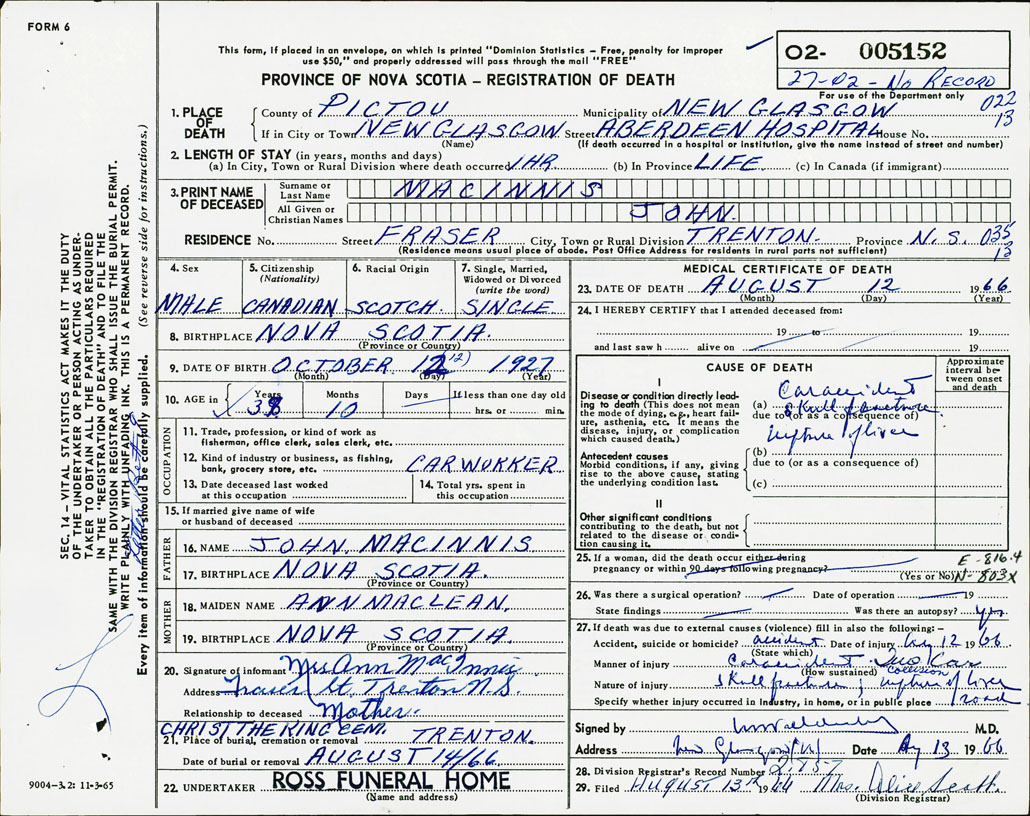 FORM 6
This form, if placed in an envelope, on which is printed "Dominion Statistics – Free, penalty for improper
use $50," and properly addressed will pass through the mail "FREE"
O2- 005152
27-02 - No RECORD
For use of the Department only
PROVINCE OF NOVA SCOTIA – REGISTRATION OF DEATH
022
13
1. PLACE OF DEATH
County of PICTOU Municipality of NEW GLASGOW
If in City or Town NEW GLASGOW Street ABERDEEN HOSPITAL House No.
(Name) (If death occurred in a hospital or institution, give the name instead of street and number)
2. LENGTH OF STAY (in years, months and days)
(a) In City, Town or Rural Division where death occurred 1 HR (b) In Province LIFE (c) In Canada (if immigrant)
3. PRINT NAME OF DECEASED
Surname or Last Name MACINNIS
All Given or Christian Names JOHN.
RESIDENCE No. Street FRASER City, Town or Rural Division TRENTON. Province N. S. 035
13
(Residence means usual place of abode. Post Office Address for residents in rural parts not sufficient)
4. Sex MALE
5. Citizenship (Nationality) CANADIAN
6. Racial Origin SCOTCH.
7. Single, Married, Widowed or Divorced (write the word) SINGLE
8. BIRTHPLACE NOVA SCOTIA.
(Province or Country)
9. DATE OF BIRTH OCTOBER 12 (12) 1927
(Month) (Day) (Year)
10. AGE in Years 38 Months 10 Days If less than one day old hrs. or min.
OCCUPATION
11. Trade, profession, or kind of work as fisherman, office clerk, sales clerk, etc.
12. Kind of industry or business, as fishing, bank, grocery store, etc. CAR WORKER
13. Date deceased last worked at this occupation
14. Total yrs. spent in this occupation
15. If married give name of wife or husband of deceased
FATHER
16. NAME JOHN. MACINNIS
17. BIRTHPLACE NOVA SCOTIA.
(Province or Country)
MOTHER
18. MAIDEN NAME ANN MACLEAN.
19. BIRTHPLACE NOVA SCOTIA.
(Province or Country)
20. Signature of informant Mrs Ann MacInnis
Address Fraser St. Trenton N.S.
Relationship to deceased Mother.
CHRIST THE KING CEM.
21. Place of burial, cremation or removal TRENTON.
Date of burial or removal AUGUST 14/66.
22. UNDERTAKER ROSS FUNERAL HOME
(Name and address)
MEDICAL CERTIFICATE OF DEATH
23. DATE OF DEATH AUGUST 12 1966
(Month) (Day) (Year)
24. I HEREBY CERTIFY that I attended deceased from:
19 to 19
and last saw h alive on 19
CAUSE OF DEATH
Approximate interval between onset and death
I
Disease or condition directly leading to death (This does not mean the mode of dying, e.g., heart failure, asthenia, etc. It means the disease, injury, or complication which caused death.)
(a) Car accident
skull fracture
due to (or as a consequence of)
rupture of liver
Antecedent causes
Morbid conditions, if any, giving rise to the above cause, stating the underlying condition last.
(b)
due to (or as a consequence of)
(c)
II
Other significant conditions contributing to the death, but not related to the disease or condition causing it.
25. If a woman, did the death occur either during
pregnancy or within 90 days following pregnancy?
(Yes or No)
E-816.4
N-803X
26. Was there a surgical operation? Date of operation 19
State findings Was there an autopsy? yes
27. If death was due to external causes (violence) fill in also the following: –
Accident, suicide or homicide? accident Date of injury Aug 12 1966
(State which)
Manner of injury Car accident. Two Car collision
(How sustained)
Nature of injury skull fracture; rupture of liver
Specify whether injury occurred in Industry, in home, or in public place road
Signed by M.D.
Address New Glasgow NS Date Aug 13 1966
28. Division Registrar's Record Number
29. Filed AUGUST 13th 1966 Mrs. Alice Scott.
(Division Registrar)
SEC. 14 – VITAL STATISTICS ACT MAKES IT THE DUTY
OF THE UNDERTAKER OR PERSON ACTING AS UNDER-
TAKER TO OBTAIN ALL THE PARTICULARS REQUIRED
IN THE "REGISTRATION OF DEATH" AND TO FILE THE
SAME WITH THE DIVISION REGISTRAR WHO SHALL ISSUE THE BURIAL PERMIT.
WRITE PLAINLY WITH UNFADING INK. THIS IS A PERMANENT RECORD.
Every item of information should be carefully supplied. (See reverse side for instructions.)
9004–3.2: 11-3-65